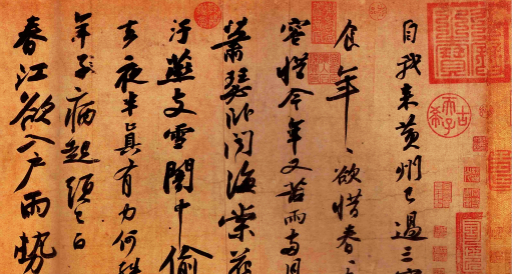 自我來黃州已過三寒
食年〻欲惜春
容惜今年又苦雨兩月
蕭瑟臥聞海棠花
汙燕支雪闇中偷
去夜半真有力何殊
年子病起須已白
春江欲入戶雨勢
古希天子